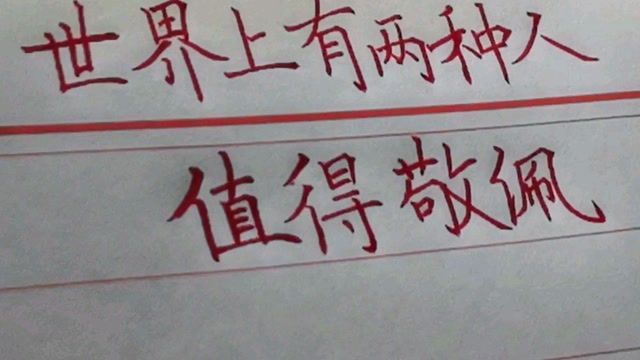 世界上有两种人
值得敬佩